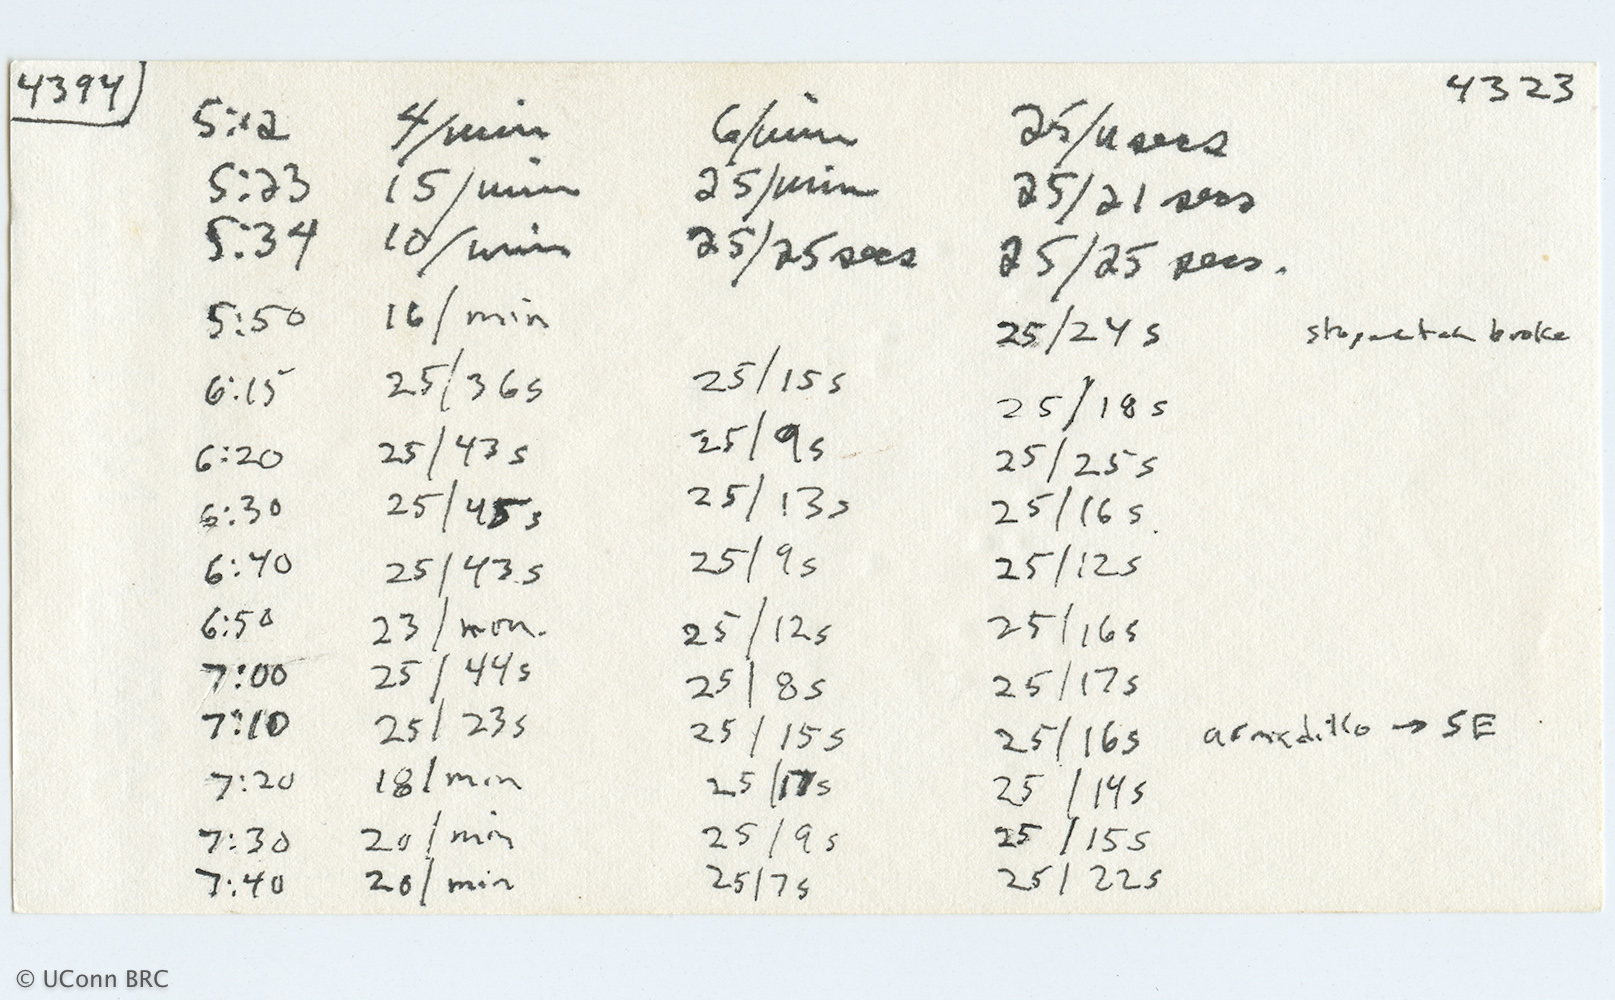 4394 4323
5:12 4/min 6/min 25/11 secs
5:23 15/min 25/min 25/21 secs
5:34 10/min 25/25 secs 25/25 secs.
5:50 16/min 25/24s stopwatch broke
6:15 25/36s 25/15s 25/18s
6:20 25/43s 25/9s 25/25s
6:30 25/45s 25/13s 25/16s.
6:40 25/43s 25/9s 25/12s
6:50 23/min. 25/12s 25/16s
7:00 25/44s 25/8s 25/17s
7:10 25/23s 25/15s 25/16s armadillo → SE
7:20 18/min 25/17s 25/14s
7:30 20/min 25/9s 25/15s
7:40 20/min 25/7s 25/22s
© UConn BRC